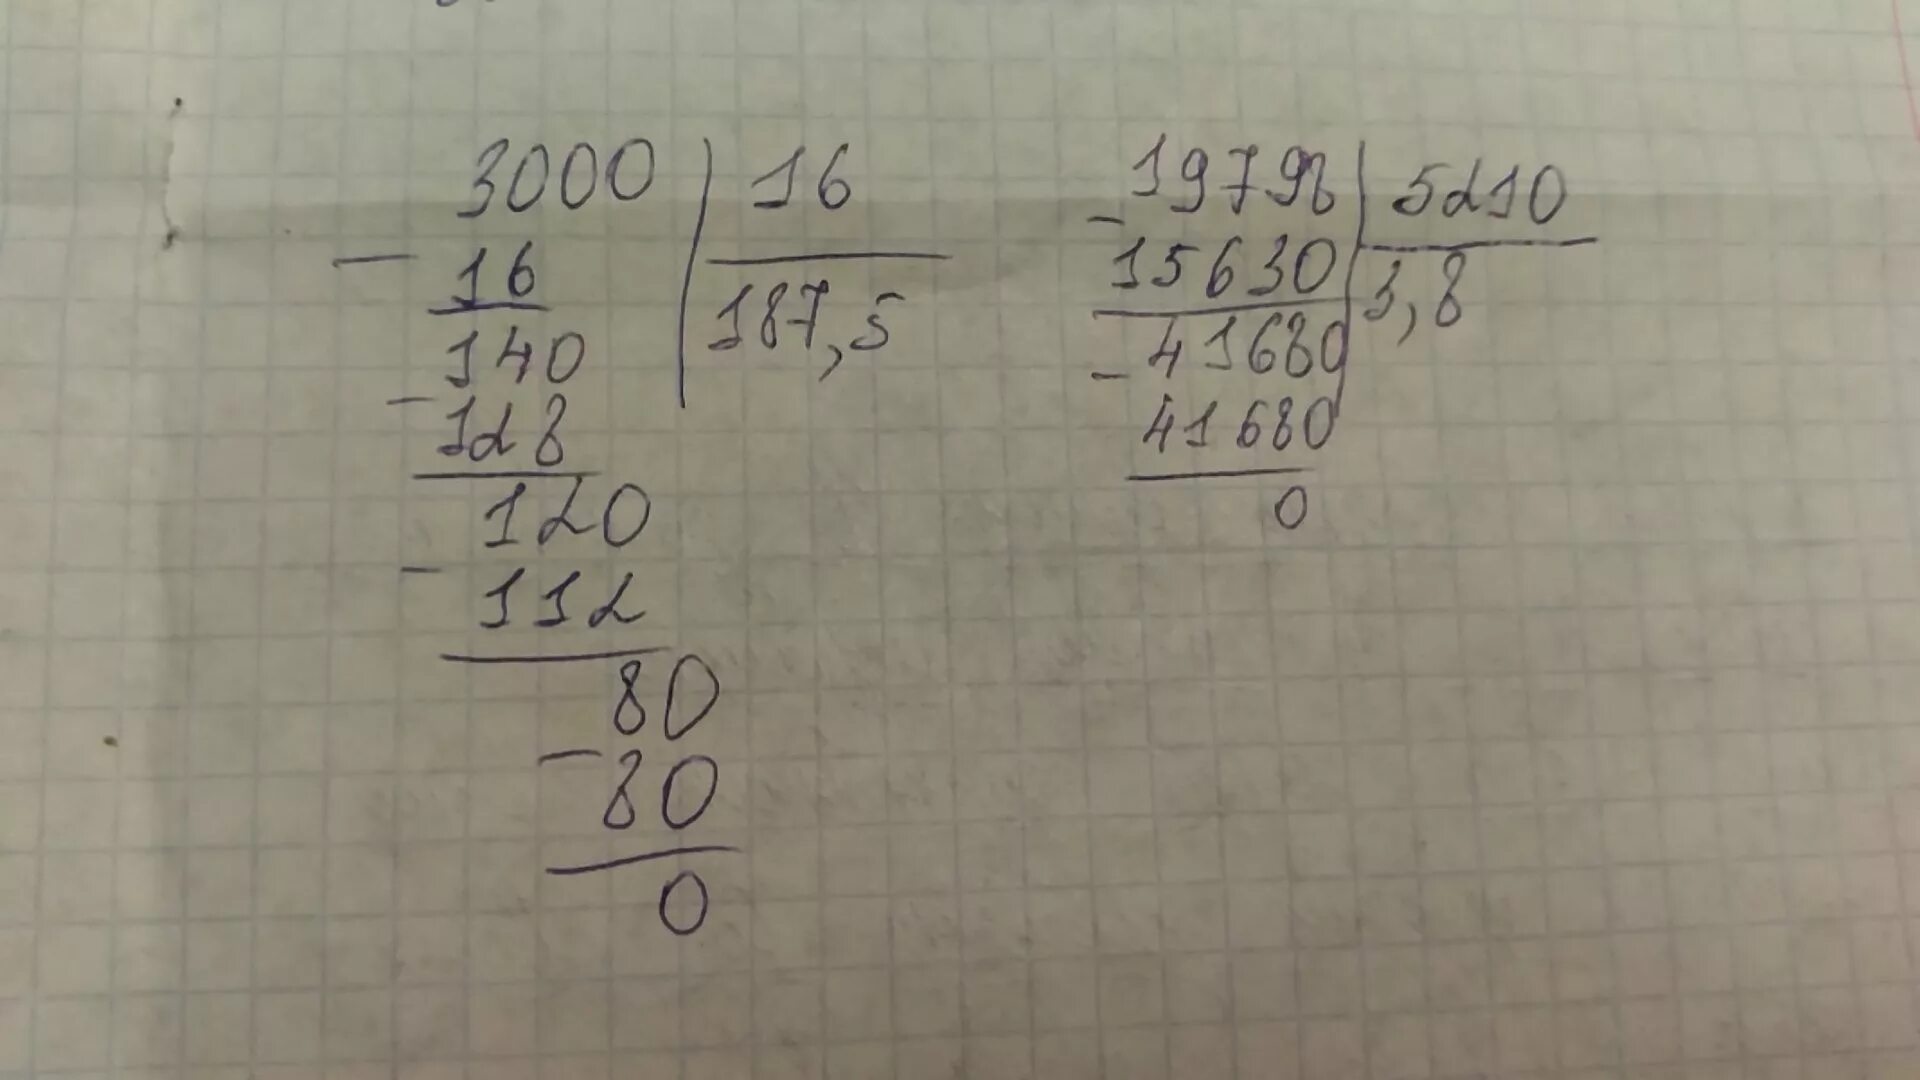 3000 | 16
- 16
187,5
140
- 128
120
- 112
80
- 80
0
19798 | 5210
- 15630
3,8
- 41680
41680
0